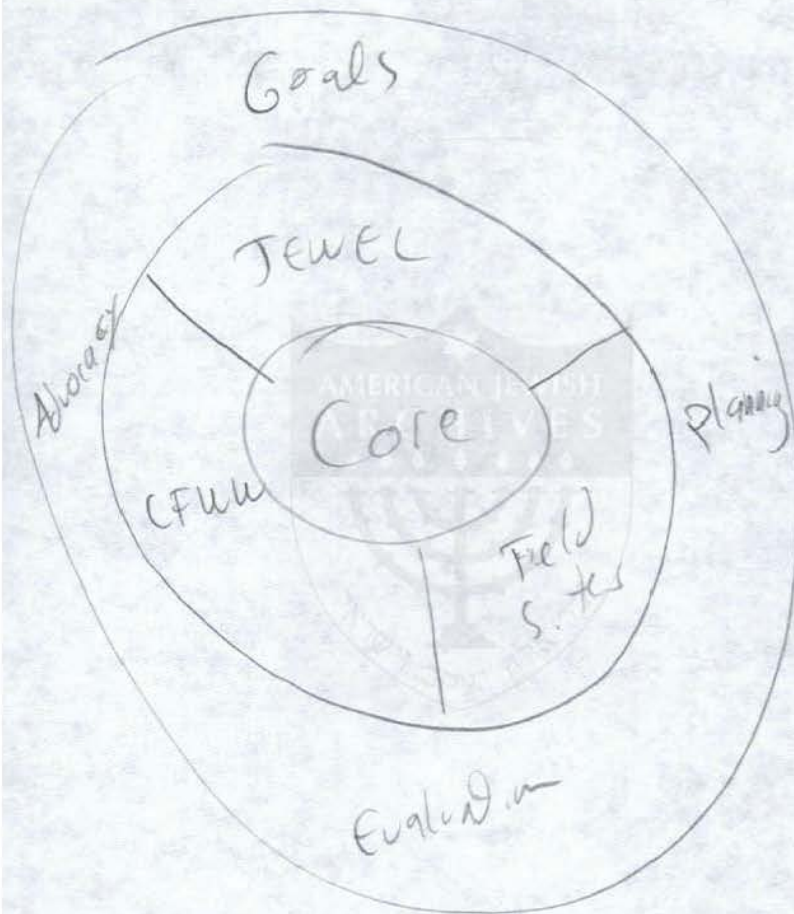 Goals
JEWEL
Advocacy
AMERICAN JEWISH
ARCHIVES
Core
Planning
CFWW
Field
Sites
Evaluation